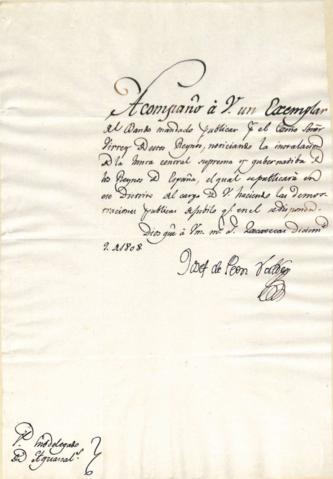 Acompaño à V. un Exemplar
del Bando mandado publicar p. el Exmo Señor
Virrey de este Reyno, noticiando la instalacion
de la Junta central suprema y gubernatiba de
los Reynos de España, el qual se publicará en
ese Distrito del cargo de V. haciendo las demos-
traciones publicas de jubilo q. en el se
Dios gue à Vm. m. a. Zacatecas Diciem
2. de 1808.
Josef de Leon Valdes
Sr. Subdelegado